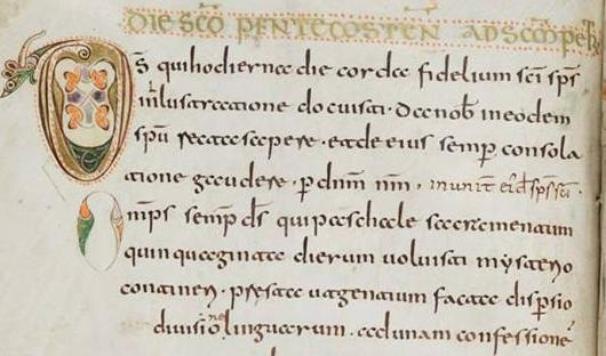 DIE SCŌ PENTECOSTĒN AD SCŌM PETR̄
D̄s qui hodiernae die corda fidelium sc̄i sp̄s
inlustracione docuisti · Da nob̄ in eodem
sp̄u recta sapere · et de eius semp̲ consola
tione gaudere · p̲ dn̄m nm̄ · munit
Omp̄s semp̄ ds̄ qui paschale sacramentum
quinquaginta dierum uoluisti mysterio
contineri · praesta ut gentium facta dispersio
diuisione linguarum · ad unam confessionē